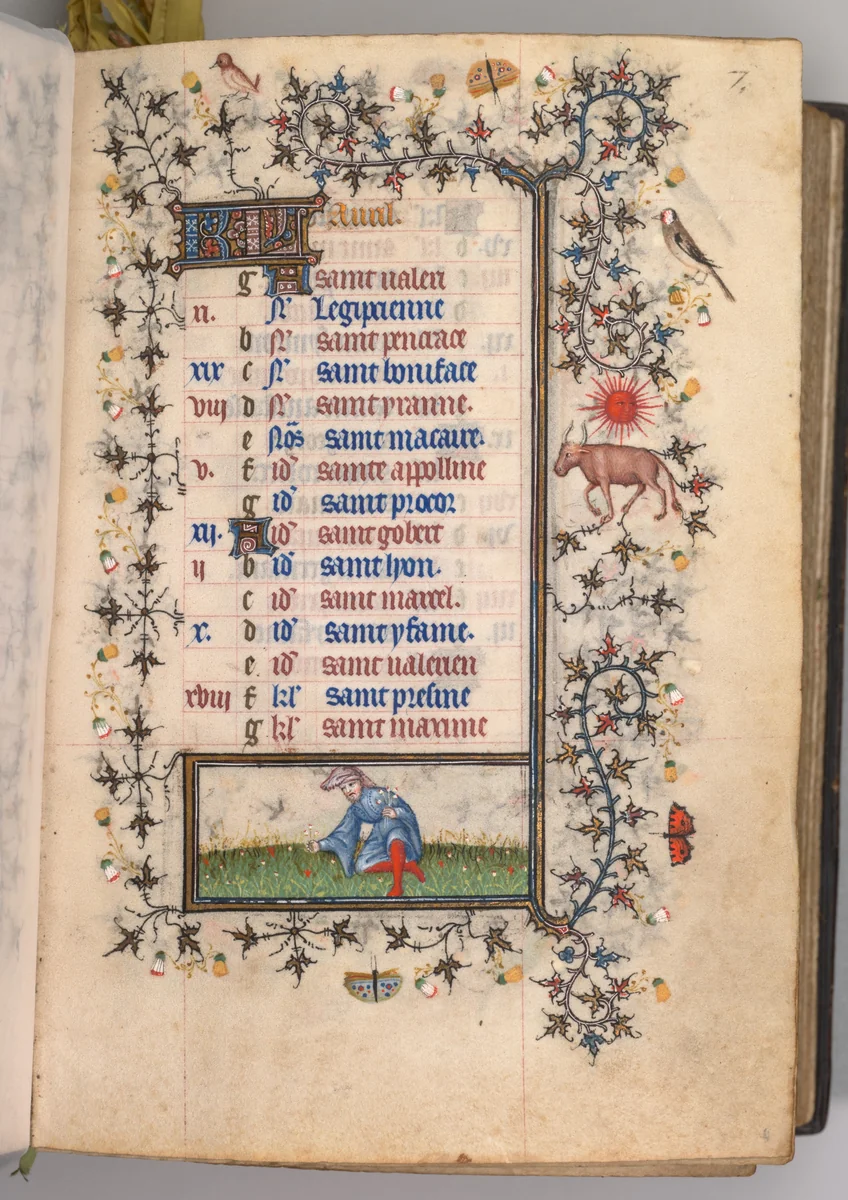 7.
KL Auril.
g A saint ualeri
xi. N̄ Legipcienne
b N̄ saint pencrace
xix c N̄ saint boniface
viij d N̄ saint tyranne.
e Nōs saint macaire.
v. f id saincte appolline
g id saint procor
xij. A id saint gobert
ij b id saint lyon.
c id saint marcel.
x. d id saint yfaine.
e id saint ualerien
xviij f kl saint presine
g kl saint maxime